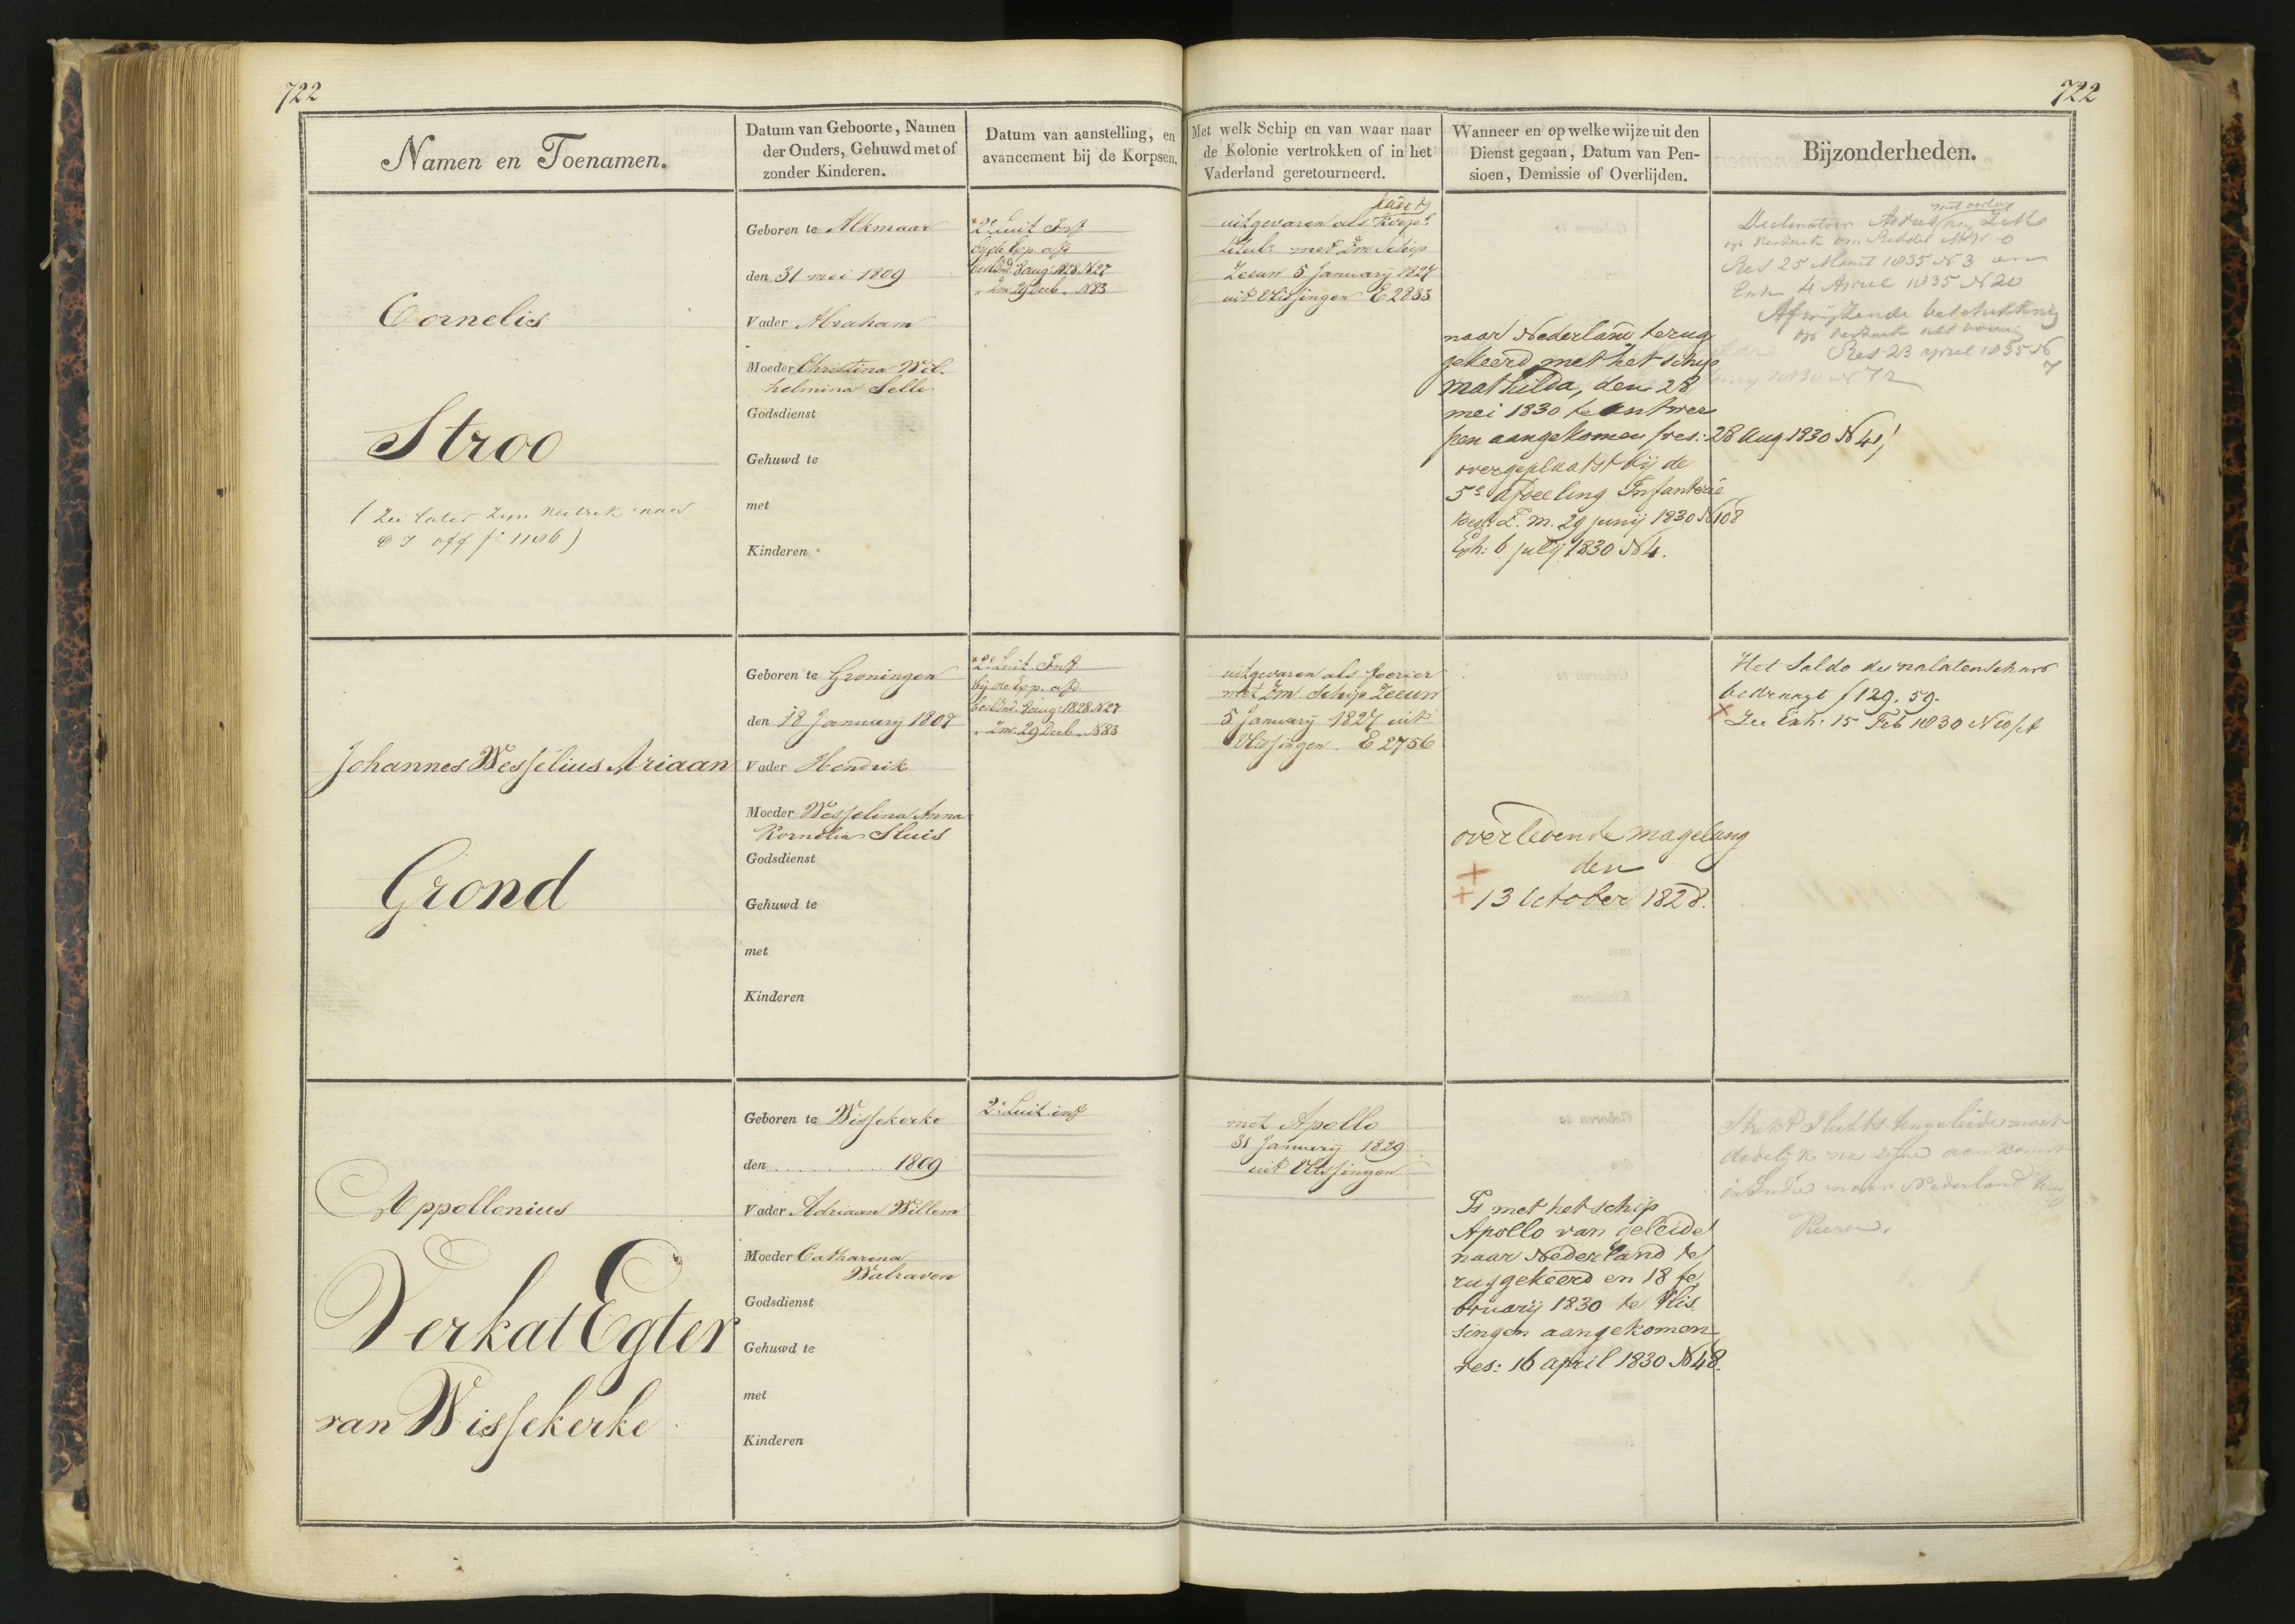 722
722
Namen en Toenamen.
Datum van Geboorte, Namen
der Ouders, Gehuwd met of
zonder Kinderen.
Datum van aanstelling, en
avancement bij de Korpsen.
Met welk Schip en van waar naar
de Kolonie vertrokken of in het
Vaderland geretourneerd.
Wanneer en op welke wijze uit den
Dienst gegaan, Datum van Pen-
sioen, Demissie of Overlijden.
Bijzonderheden.
Cornelis
Stroo
off f° 1106)
Geboren te Alkmaar
den 31 mei 1809
Vader Abraham
Moeder Christina Wil-
helmina Selle
Godsdienst
Gehuwd te
met
Kinderen
2e Luit Inf
bij de Exp. afd
besl Ind. 8 aug: 1828 N 27
" Zm 29 Decb. " N 83
uitgevaren als Korpl
titul: met Zm Schip
Zeeuw 5 January 1827
uit Vlissingen E 2833
naar Nederland terug
gekeerd met het schip
Mathilda, den 28
mei 1830 te Antwer
pen aangekomen /res: 28 Aug 1830 N 41/
overgeplaatst bij de
5e afdeeling Infanterie
29 junij 1830 N 108
Exh: 6 july 1830 N 4.
Res 25 Maart 1835 N 3 en
Exh 4 April 1835 N 20
Afwijzende beschikking
Res 23 april 1835 N
7
Johannes Wesselius Ariaan
Grond
Geboren te Groningen
den 18 January 1807
Vader Hendrik
Moeder Wesselina Anna
Kornelia Sluis
Godsdienst
Gehuwd te
met
Kinderen
2e Luit. Inf.
bij de Exp. afd.
besl Ind. 8 aug: 1828 N 27
" Zm 29 Decb. " N 83
uitgevaren als foerier
met Zm Schip Zeeuw
5 January 1827 uit
Vlissingen. E 2756
overleden te magelang
den
13 October 1828.
Het Saldo der nalatenschap
bedraagt f 129.59.
Zie Exh: 15 Feb 1830
Appollonius
Verkat Egter
van Wissekerke
Geboren te Wissekerke
den ........... 1809
Vader Adriaan Willem
Moeder Catharina
Walraven
Godsdienst
Gehuwd te
met
Kinderen
2e Luit inf
met Apollo
31 January 1829
uit Vlissingen
Is met het schip
Apollo van geleide
naar Nederland te
ruggekeerd en 18 fe
bruarij 1830 te Vlis
singen aangekomen
res: 16 april 1830 N 48.
Strekt slechts ten geleide moet
dadelijk na zijne aankomst
in Indie naar Nederland terug
keeren.